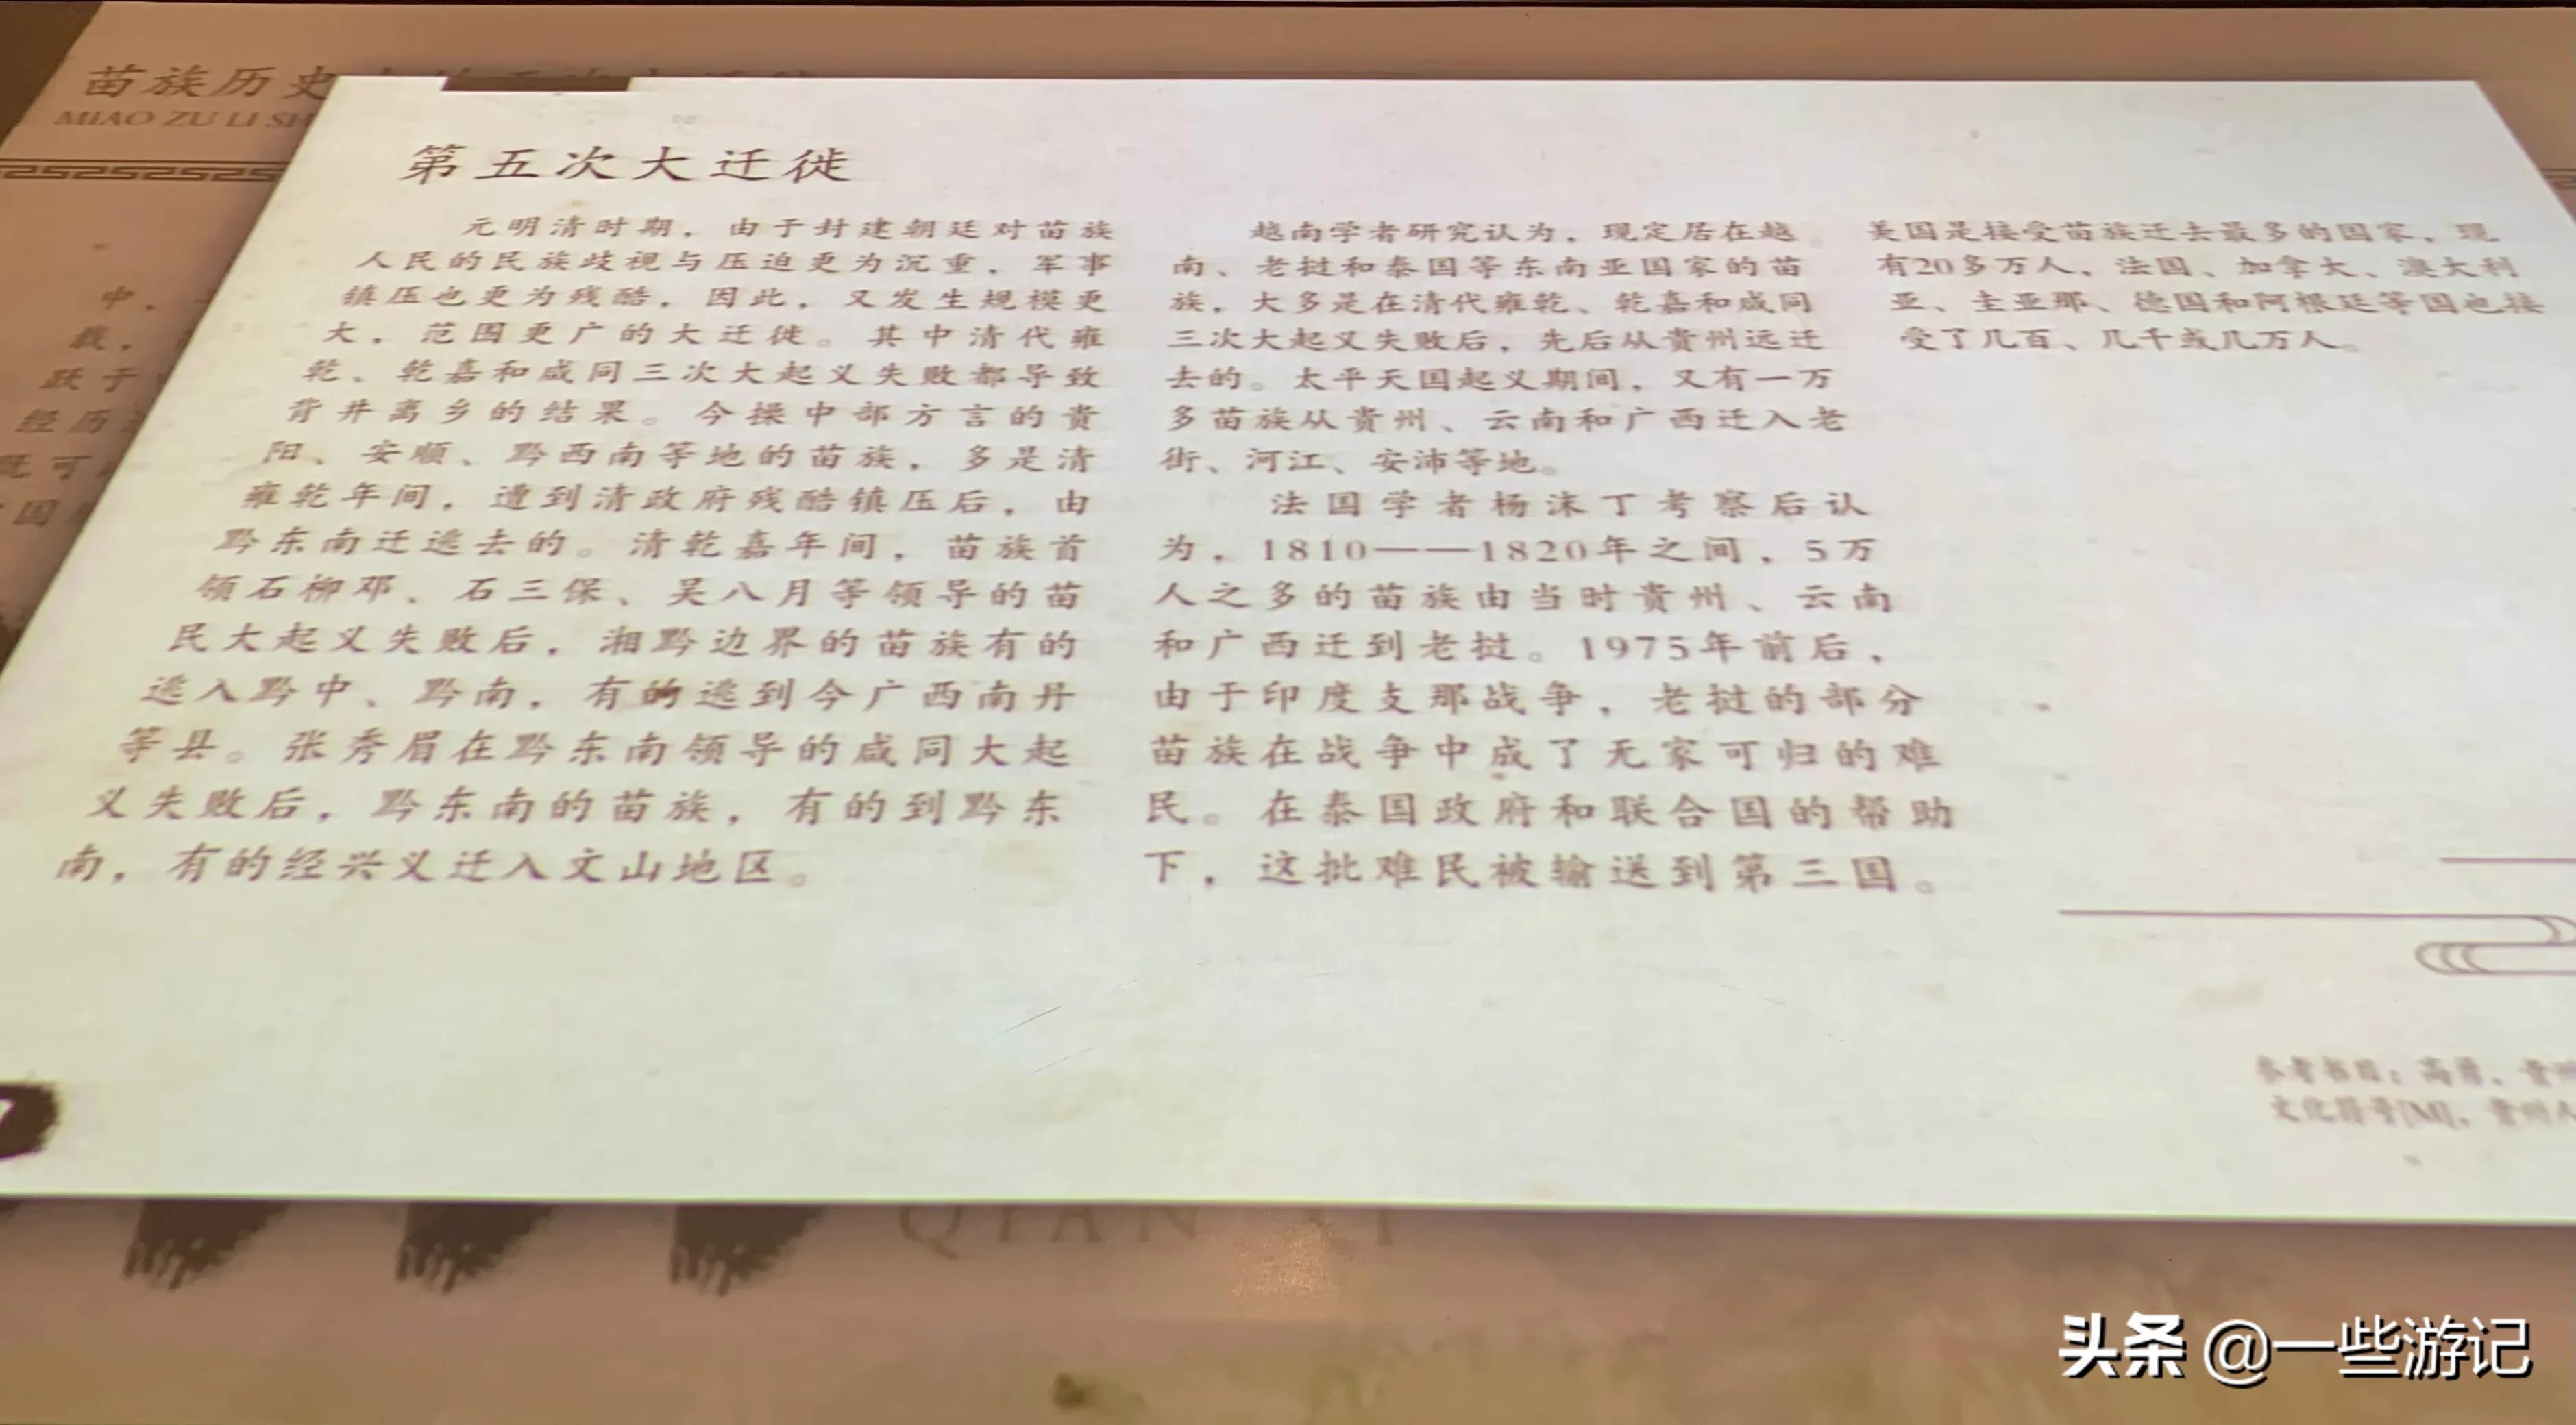 苗族历史
MIAO ZU LI SH
第五次大迁徙
元明清时期，由于封建朝廷对苗族
人民的民族歧视与压迫更为沉重，军事
镇压也更为残酷，因此，又发生规模更
大，范围更广的大迁徙。其中清代雍
乾、乾嘉和咸同三次大起义失败都导致
背井离乡的结果。今操中部方言的贵
阳、安顺、黔西南等地的苗族，多是清
雍乾年间，遭到清政府残酷镇压后，由
黔东南迁逃去的。清乾嘉年间，苗族首
领石柳邓、石三保、吴八月等领导的苗
民大起义失败后，湘黔边界的苗族有的
逃入黔中、黔南，有的逃到今广西南丹
等县。张秀眉在黔东南领导的咸同大起
义失败后，黔东南的苗族，有的到黔东
南，有的经兴义迁入文山地区。
越南学者研究认为，现定居在越
南、老挝和泰国等东南亚国家的苗
族，大多是在清代雍乾、乾嘉和咸同
三次大起义失败后，先后从贵州远迁
去的。太平天国起义期间，又有一万
多苗族从贵州、云南和广西迁入老
街、河江、安沛等地。
法国学者杨沫丁考察后认
为，1810——1820年之间，5万
人之多的苗族由当时贵州、云南
和广西迁到老挝。1975年前后，
由于印度支那战争，老挝的部分
苗族在战争中成了无家可归的难
民。在泰国政府和联合国的帮助
下，这批难民被输送到第三国。
美国是接受苗族迁去最多的国家，现
有20多万人，法国、加拿大、澳大利
亚、圭亚那、德国和阿根廷等国也接
受了几百、几千或几万人。
中，
践，
跃于
经历
既可
国
参考书目：高
文化符号[M]，贵州人
QIAN XI
头条 @一些游记